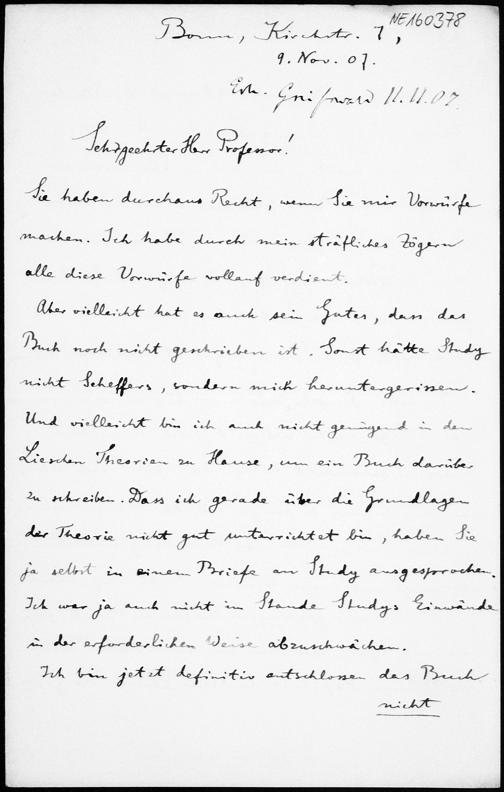 NE160378
Bonn, Kirchstr. 7,
9. Nov. 07.
Erh. Greifswald 11.11.07.
Sehrgeehrter Herr Professor!
Sie haben durchaus Recht, wenn Sie mir Vorwürfe
machen. Ich habe durch mein sträfliches Zögern
alle diese Vorwürfe vollauf verdient.
Aber vielleicht hat es auch sein Gutes, dass das
Buch noch nicht geschrieben ist. Sonst hätte Study
nicht Scheffers, sondern mich heruntergerissen.
Und vielleicht bin ich auch nicht genügend in den
Lieschen Theorien zu Hause, um ein Buch darüber
zu schreiben. Dass ich gerade über die Grundlagen
der Theorie nicht gut unterrichtet bin, haben Sie
ja selbst in einem Briefe an Study ausgesprochen.
Ich war ja auch nicht im Stande Studys Einwände
in der erforderlichen Weise abzuschwächen.
Ich bin jetzt definitiv entschlossen das Buch
nicht